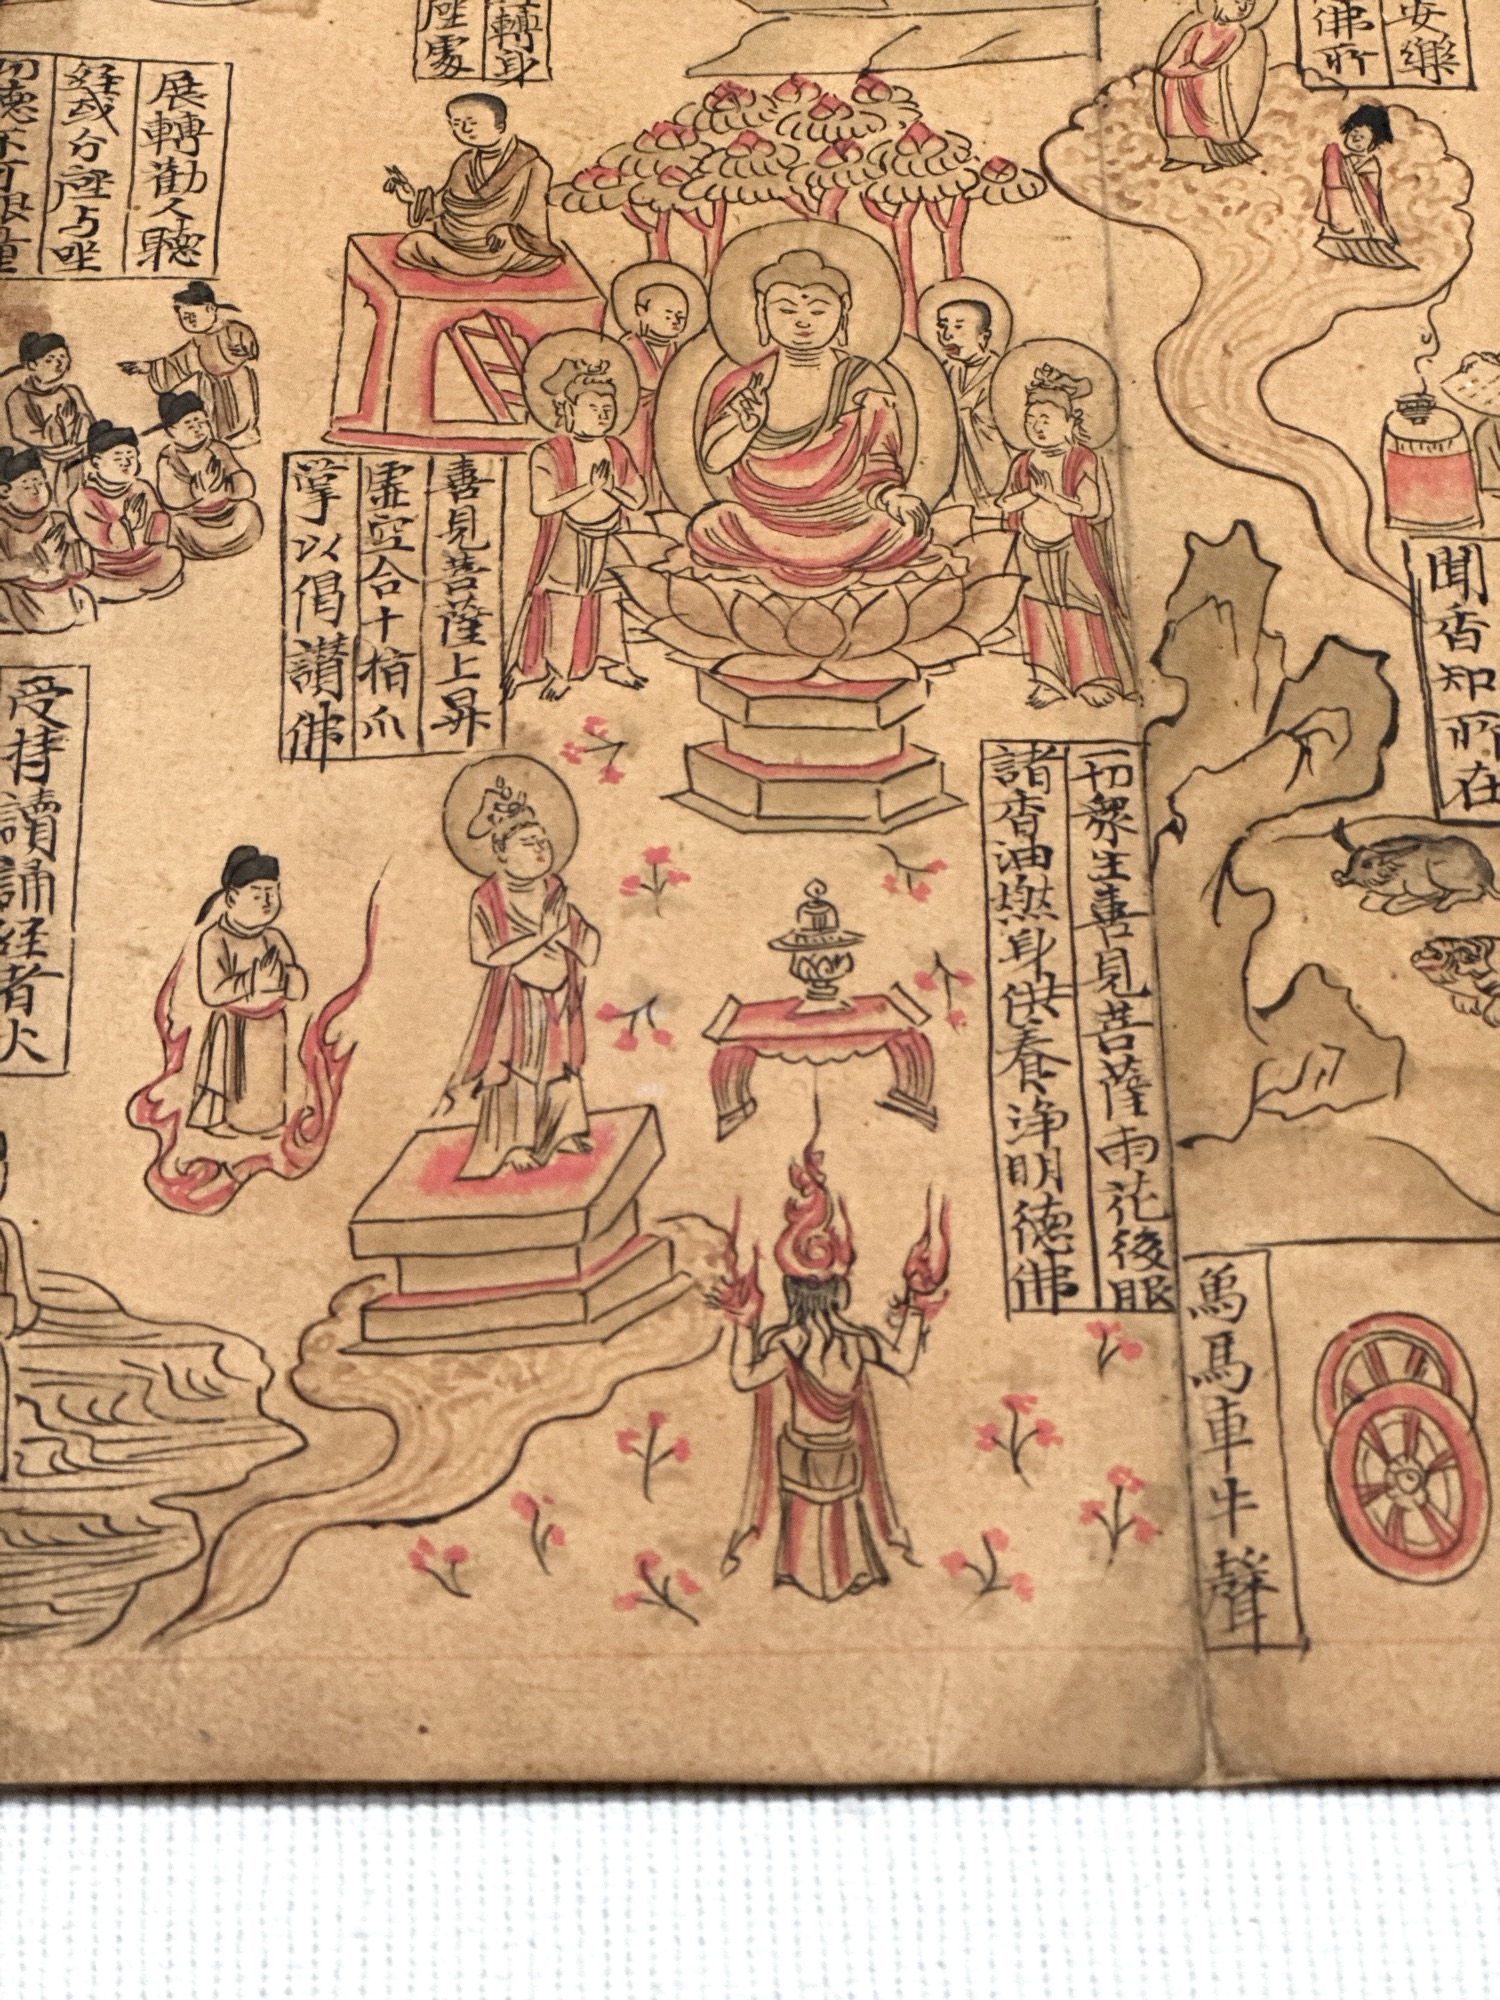 安樂
佛所
聞香知所在
轉身
座處
展轉勸人聽
經或分座与坐
功德不可限量
善見菩薩上昇
虛空合十指爪
掌以偈讃佛
一切衆生喜見菩薩雨花後眼
諸香油燃身供養淨明德佛
受持讀誦經者火
為馬車牛聲